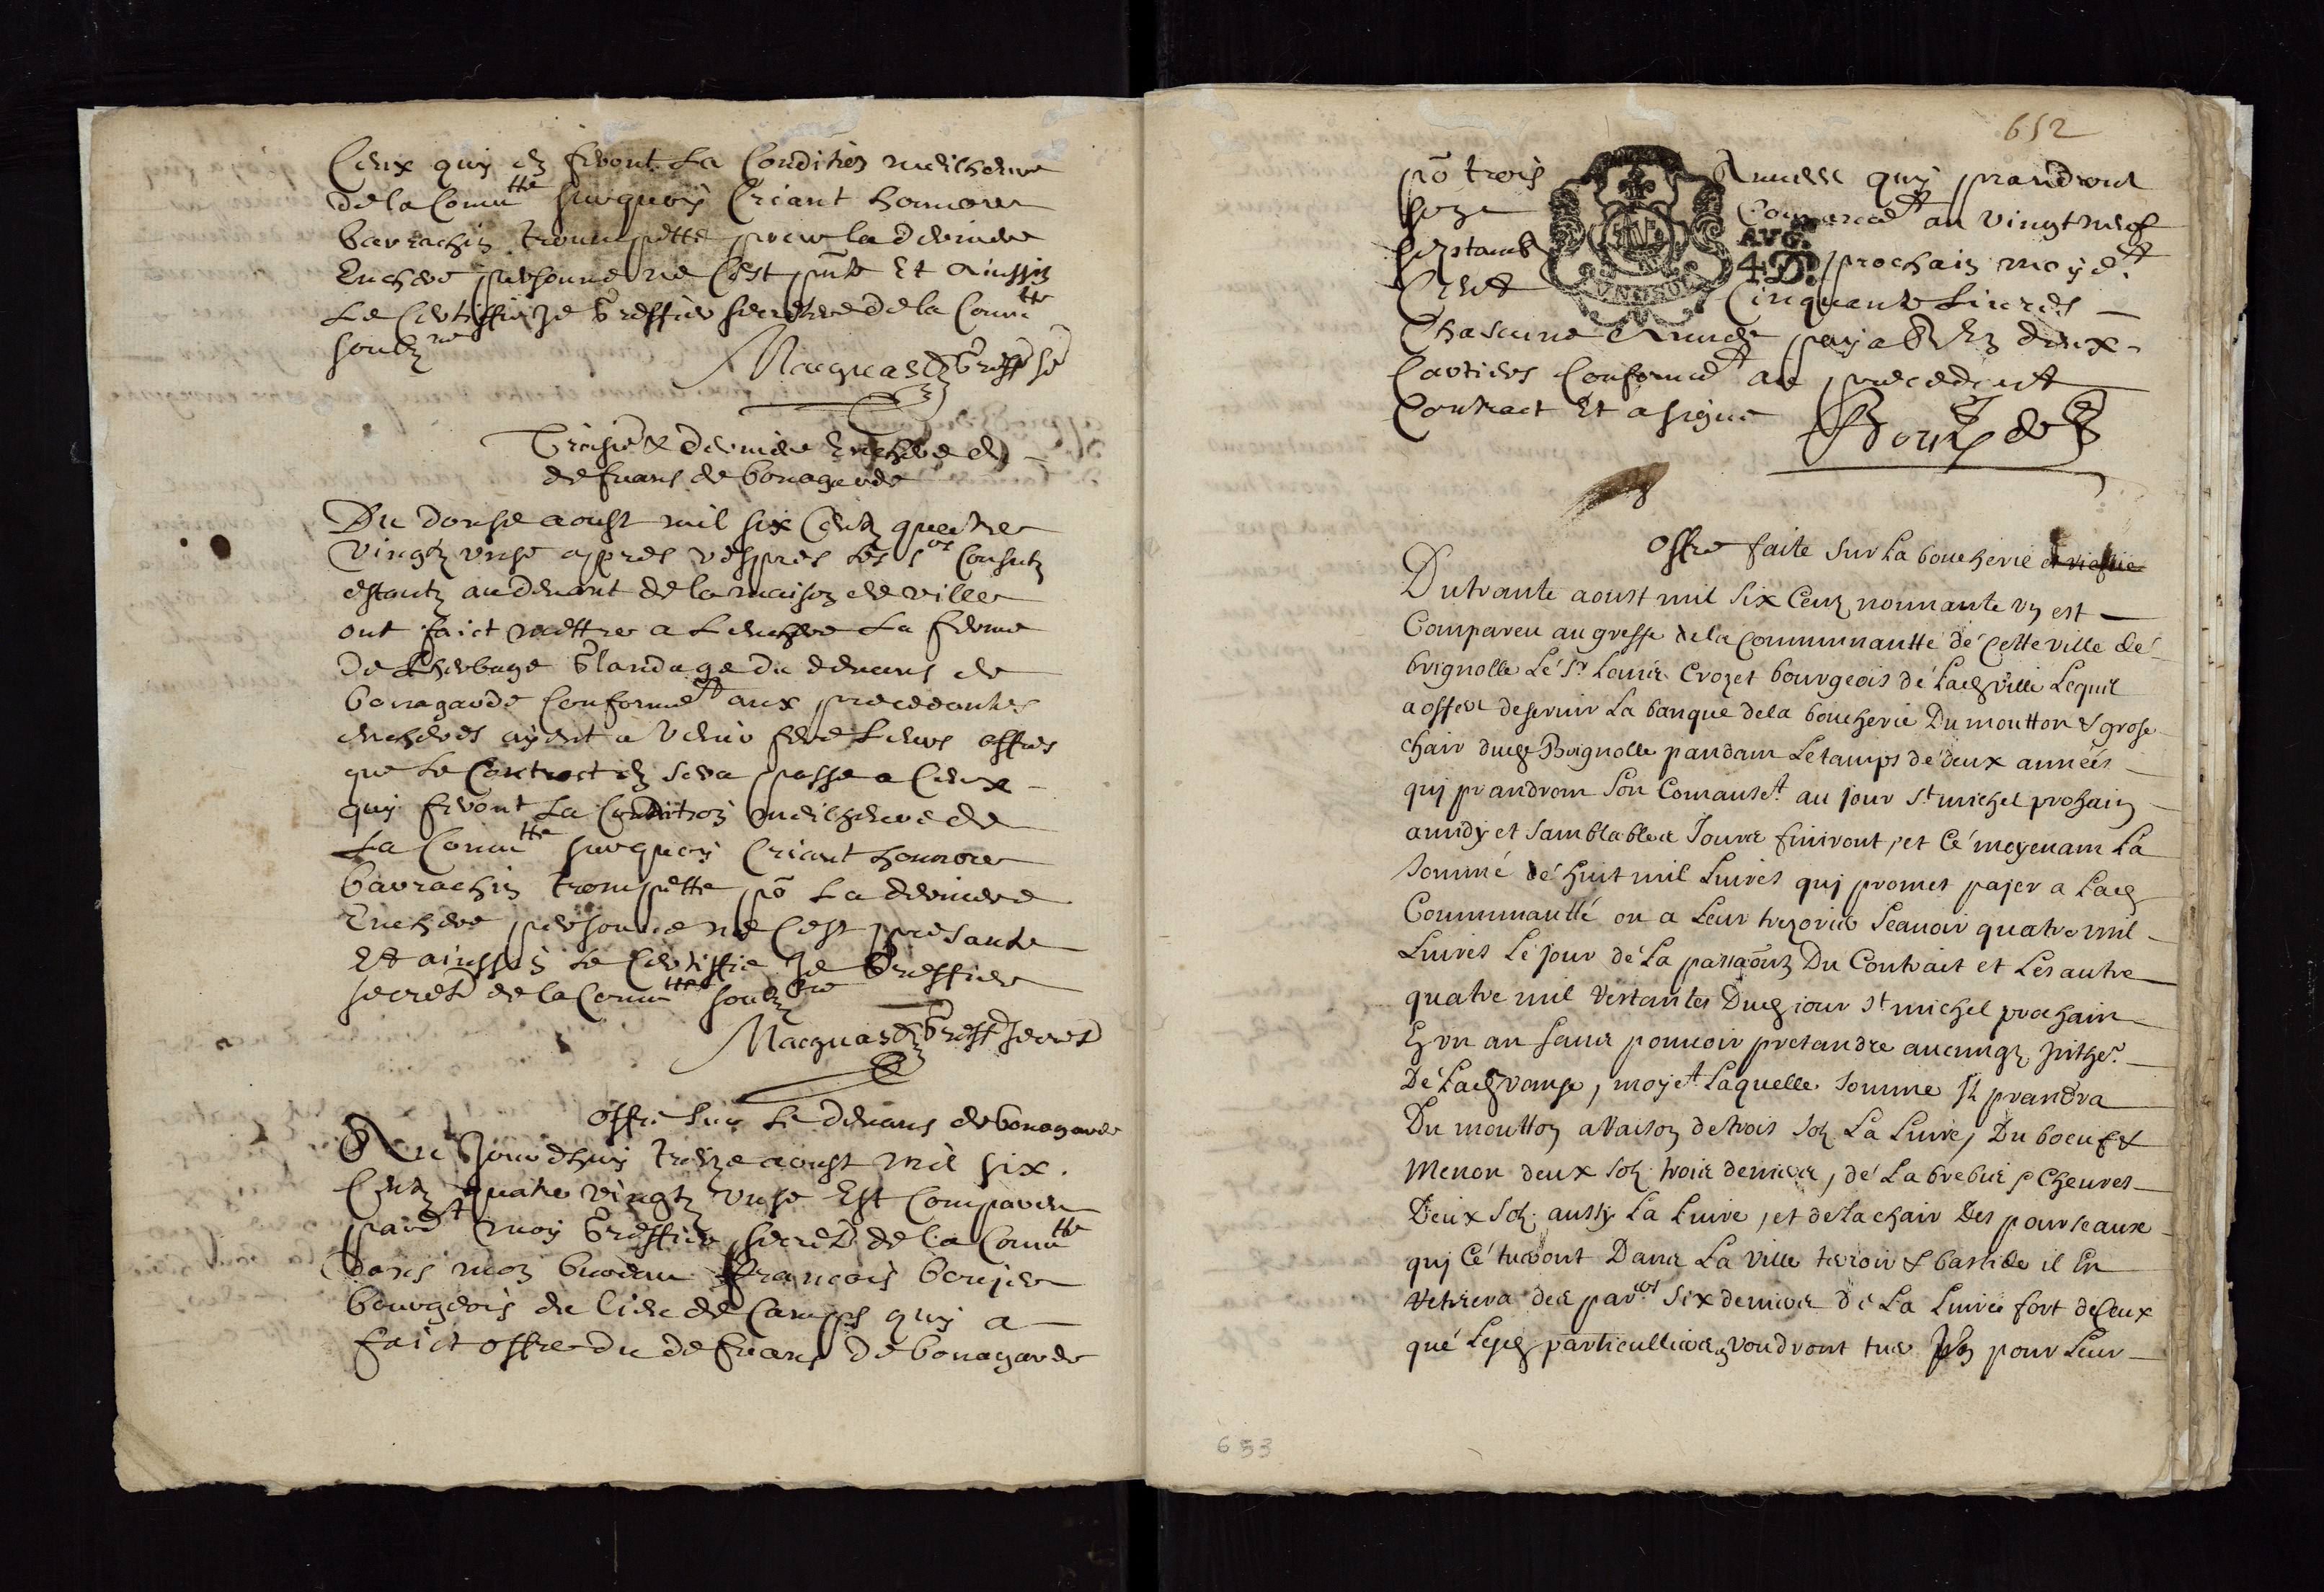 Ceux quy en feront la Condition meilheure
de la Comu.tte surquoy Criant honnore
barrachin trompette pour la derniere
Enchere personne ne c'est pnté Et ainssin
Le Certiffie Je Greffier secretere de la Comu.tte
soubz.ne
Greff se
Troisie & derniere Enchere du
deffuans de bonagarde
Du donse aoust mil six Centz quatre
vingtz unse appres vespres les s.rs Consulz
estantz audevant de la maison de ville
ont faict mettre a Lenchere La ferme
de Lherbage Glandage du devans de
bonagarde Conformet aux precedantes
encheres ayent a venir fere Leurs offres
que Le Contract en sera passe a Ceux
quy feront La Condition meilheure de
La Comu.tte surquoy Criant honnore
barrachin trompette po La derniere
Enchere personne ne c'est presante
Et ainssin Le Certiffie Je Greffier
secret de la Comu.tte soubz.ne
Greff secret
Offre sur Le devans de bonagarde
Au Jourdhuy treize aoust mil six
Centz quatre vingtz unse Est Comparu
pard.t moy Greffier secret de la Comu.tte
dans mon bureau françois
bourgeois du lieu de Camps quy a
faict offre du deffuans de bonagarde
652
po trois Annees quy prandront
Comancet au vingt neuf
AVG.
4D. prochain moyet
Cent Cinquante Livres
Chascune Annee payable En deux
Cartiers Conformet au precedent
Contract Et a signe
Offre faite sur La boucherie
Du trante aoust mil six Cens nonnante un est
Compareu au greffe de la Communautté dé Cette ville dé
brignolle Lé Sr Louis Crozet bourgeois dé Lad ville Lequel
a offert deservir La banque dela boucherie Du moutton & grose
chair dud Brignolle pandam Le tamps dé deux années
quj prandrom Son Comanset au jour St michel prohain
a midy et Samblables Jours finiront, et Cé moyenam La
sommé dé huit mil Livres quj promet pajer a Lad
Communautté ou a Leur trezorier Scauoir quatre mil
Livres Lé jour dé La passaon Du Contrait et Les autre
quatre mil restantes Dud jour St michel prochain
En un an sans pouuoir pretandre aucungz
Dé Lad vanse, moyet Laquelle Somme il prandra
Du moutton a Raison de trois Sol La Livre, Du boeuf &
Menon deux Sol trois deniers, dé La brebis & Cheures
Deux Sol aussy La Livre, et de La chair Des pourseaux
quj Cé tueront Dans La ville teroir & bastides il En
Retirera des par.ers Six deniers dé La Livre fort de Ceux
qué Lesd particulliers voudront tuer pour Leur
653